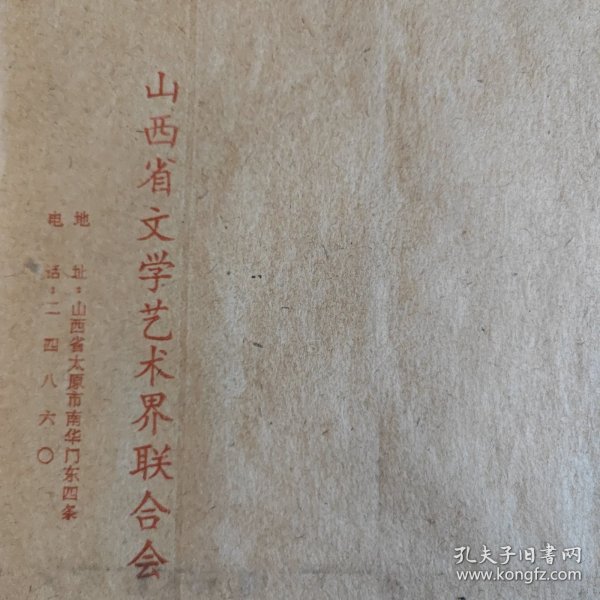 山西省文学艺术界联合会
地址：山西省太原市南华门东四条
电话：二四八六〇
孔夫子旧书网
www.kongfz.com